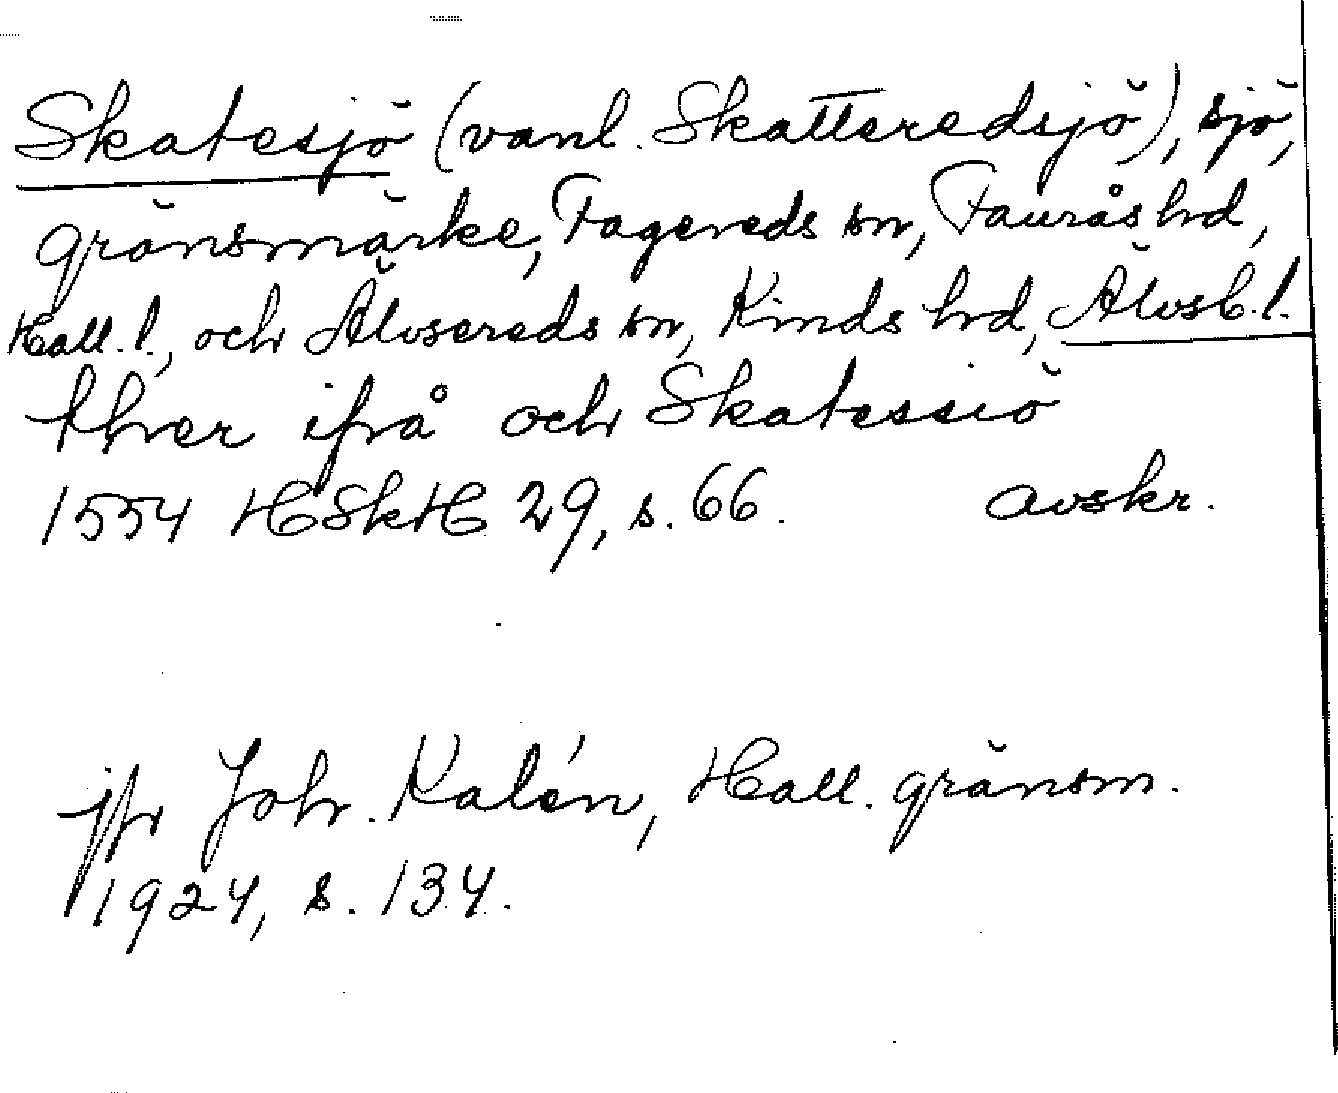 Skatesjö (vanl. Skatteredsjö), sjö,
gränsmärke, Fagereds sn, Faurås hd,
Hall. l., och Älvsereds sn, Kinds hd, Älvsb. l.
thher ifrå och Skatessiö
1554 HSkH 29, s. 66. avskr.
jfr Joh. Kalén, Hall. gränsm.
1924, s. 134.